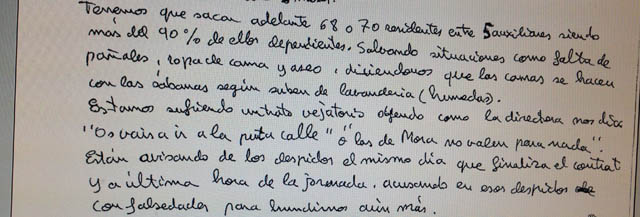 Tenemos que sacar adelante 68 o 70 residentes entre 5 auxiliares siendo
más del 90% de ellos dependientes. Salvando situaciones como falta de
pañales, ropa de cama y aseo, diciendonos que las camas se hacen
con las sábanas según suben de lavandería (humedas).
Estamos sufriendo un trato vejatorio oyendo como la directora nos dice
"Os vais a ir a la puta calle" o "las de Mora no valen para nada".
Están avisando de los despidos el mismo día que finaliza el contrat
y a última hora de la jornada, acusando en esos despidos
con falsedades para hundirnos aún más.